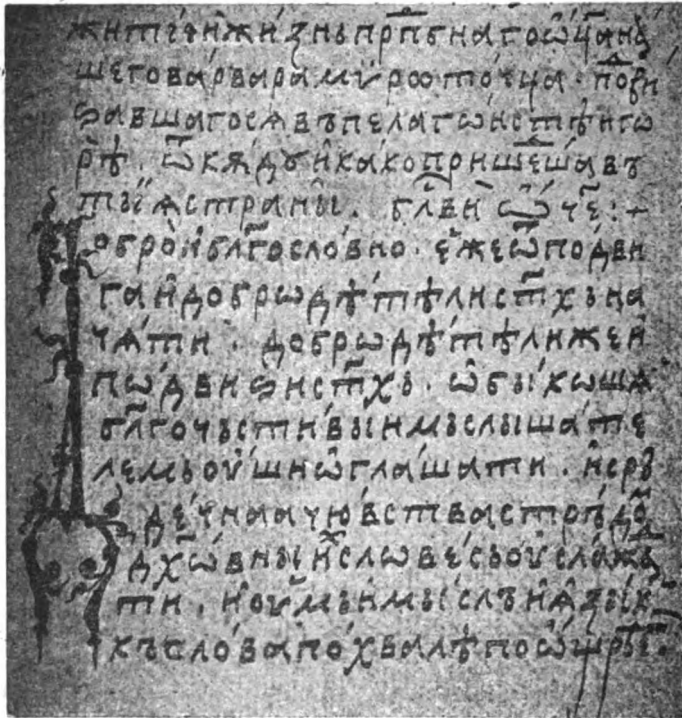 житїе и҆ жи́знь прⷣпбнаго ѿца на
шего варвара мѷрото́чца · поⷣви
ѕавшагосѧ въ пелаго́нстѣи го
рѣ . ѿкѫдꙋ и҆ како пришеⷣша въ
тыѧ странꙑ . бл҃ви ѿче :+
обро̀ и҆ бл҃гослόвно · е҆же ѿ подви
га и҆ добродѣ́тѣли ст҃хъ на
чѧ́ти · добродѣ́тѣли же и҆
по́двиѕи ст҃хъ · ѡ҆бы́коша
бл҃гочьсти́вꙑимь слꙑша́те
лемь оу҆ши ѡ҆глаша́ти . и҆ срⷣ
де́чнаа чю́вства
дх҃о́внꙑи словесꙑ оу҆слажⷣа
ти . и҆ оу҆мь и҆ мꙑ́сль и҆ ѧ҆зꙑ́к
къ сло́ва по́хвалѣ поѡ҆щрѣ